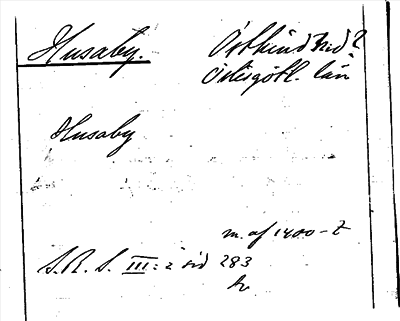 Husaby. Östkind hd?
Östsgötl. län
Husaby
m. af 1400-t
S.R.S. III:2 sid 283